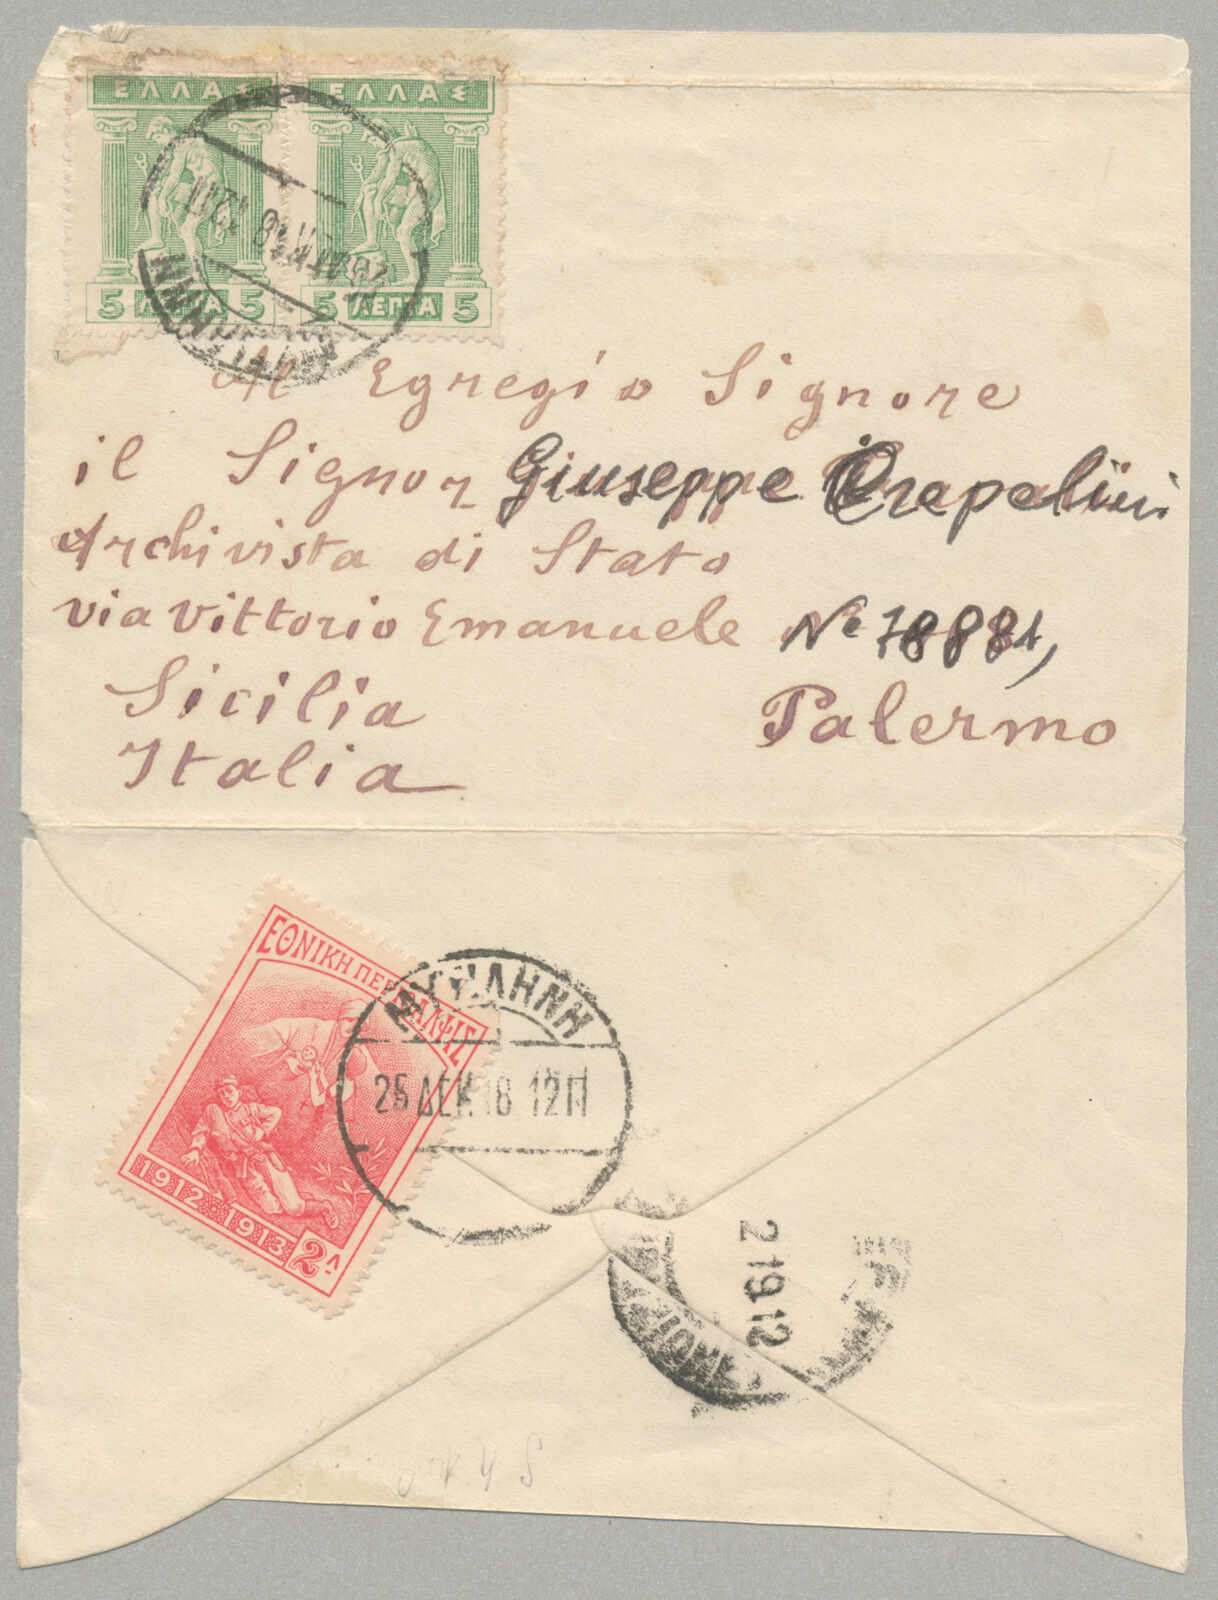 ΕΛΛΑΣ ΕΛΛΑΣ
5 ΛΕΠΤΑ 5 5 ΛΕΠΤΑ 5
Al Egregio Signore
il Signor Giuseppe
Archivista di Stato
via Vittorio Emanuele No 78881,
Sicilia Palermo
Italia
ΕΘΝΙΚΗ ΠΕΡΙΘΑΛΨΙΣ
1912-1913 2Λ
ΜΥΤΙΛΗΝΗ
26 ΔΕΚ 18 12Π
2 19 12